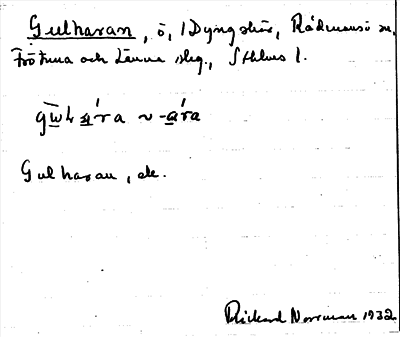 Gulharan, ö, i Dyngskär, Rådmansö sn,
Frötuna och Länna skg., Sthlms l.
gwh ára ~ -ára
Gulharan, ek.
Rickard Norrman 1932.